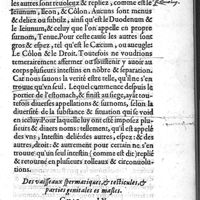 les autres sont reuolez & repliez, comme est le
Ieiunum, Ileon, & Côlon. Aucuns sont menus
& deliez ou subtils, ainsi qu'est le Duodenum &
le Ieiunum, & celuy que l'on appelle en propre
surnom, Tenue. Pour ceste cause les autres sont
gros & espez, tel qu'est le Cæcum, ou aueugle:
Le Côlon & le Droit. Toutesfois ne voudrons
temerairement affermer ou soustenir y auoir au
corps plusieurs intestins en nôbre & separation.
Car nous sauons à la verité estre telle, qu'il n'en
trouue qu'vn seul. Lequel commence depuis la
portier de l'estomach, & finist au siege, ayât tou-
tesfois diuerses appellations & surnoms, selon
la diuersité de la substance & situation qui se voit
en iceluy. Pour laquelle luy ont esté imposé plu-
sieurs & diuers noms: tellement, qu'il est dit aux
vns, intestin deliée des autres, espez: & des
autres, droit: & autrement par autres. combien
qu'il soit vn seul intestin (comme est dit) replié
& retourné en plusieurs rolleaux, & circonuolu-
tions.
Des vaisseaux spermatiques, & testicules, &
parties genitales es masles.